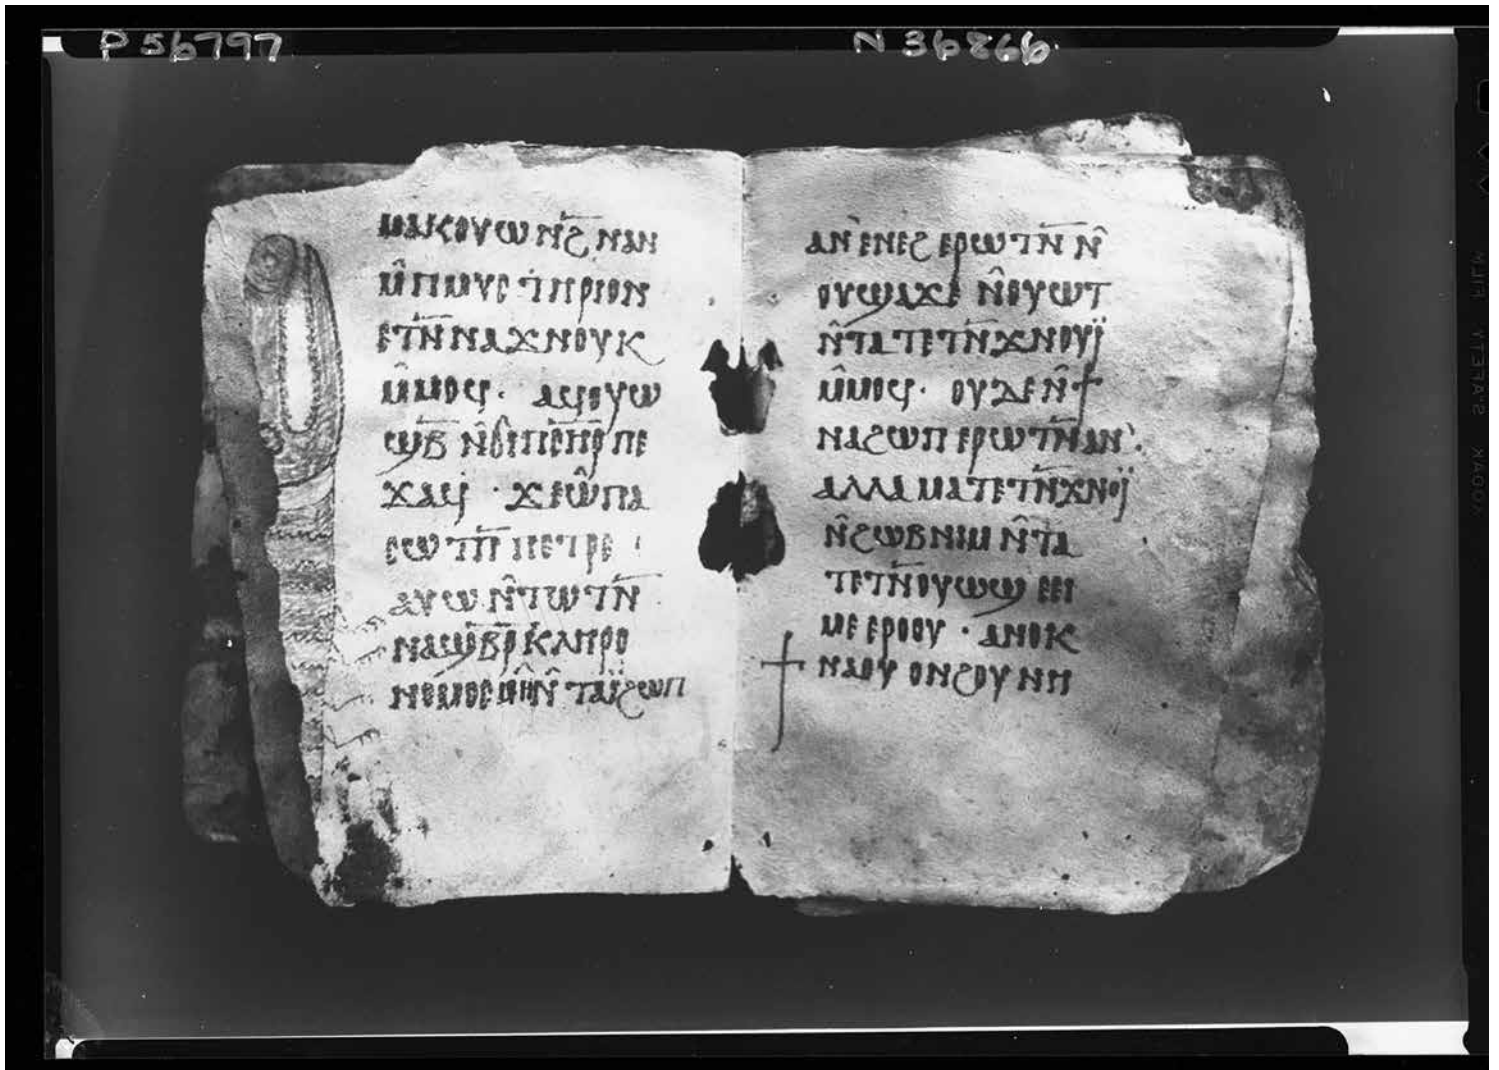 P 56797
N 36266
ⲙⲁⲕⲟⲩⲱⲛϩ̅ ⲛⲁⲛ
ⲙ̂ⲡⲙⲩⲥⲧⲏⲣⲓⲟⲛ
ⲉⲧⲛ̅ⲛⲁϫⲛⲟⲩⲕ
ⲙ̂ⲙⲟϥ· ⲁϥⲟⲩⲱ
ϣⲃ̅ ⲛ̂ϭⲓⲡⲥⲏ̅ⲣ̅ ⲡⲉ
ϫⲁϥ · ϫⲉⲱ̂ ⲡⲁ
ⲥⲱⲧⲡ̅ ⲡⲉⲧⲣⲉ
ⲁⲩⲱ ⲛ̂ⲧⲱⲧⲛ̅
ⲛⲁϣⲃ̅ⲣ̅ⲕⲗⲏⲣⲟ
ⲛⲟⲙⲟⲥ ⲙ̂ⲡⲓ ⲧⲁⲓ̈ϩⲱⲡ
ⲁⲛ ⲉⲛⲉϩ ⲉⲣⲱⲧⲛ̅ ⲛ̂
ⲟⲩϣⲁϫⲉ ⲛ̂ⲟⲩⲱⲧ
ⲛ̂ⲧⲁⲧⲉⲧⲛ̅ϫⲛⲟⲩⲓ̈
ⲙ̂ⲙⲟϥ· ⲟⲩⲇⲉ ⲛ̂ϯ
ⲛⲁϩⲱⲡ ⲉⲣⲱⲧⲛ̅ ⲁⲛ·
ⲁⲗⲗⲁ ⲙⲁⲧⲉⲧⲛ̅ϫⲛⲟⲓ̈
ⲛ̂ϩⲱⲃ ⲛⲓⲙ ⲛ̂ⲧⲁ
ⲧⲉⲧⲛ̅ⲟⲩⲱϣ ⲉⲉⲓ
ⲙⲉ ⲉⲣⲟⲟⲩ · ⲁⲛⲟⲕ
ϯⲛⲁⲟⲩⲟⲛϩⲟⲩ ⲛⲏ
KODAK SAFETY FILM